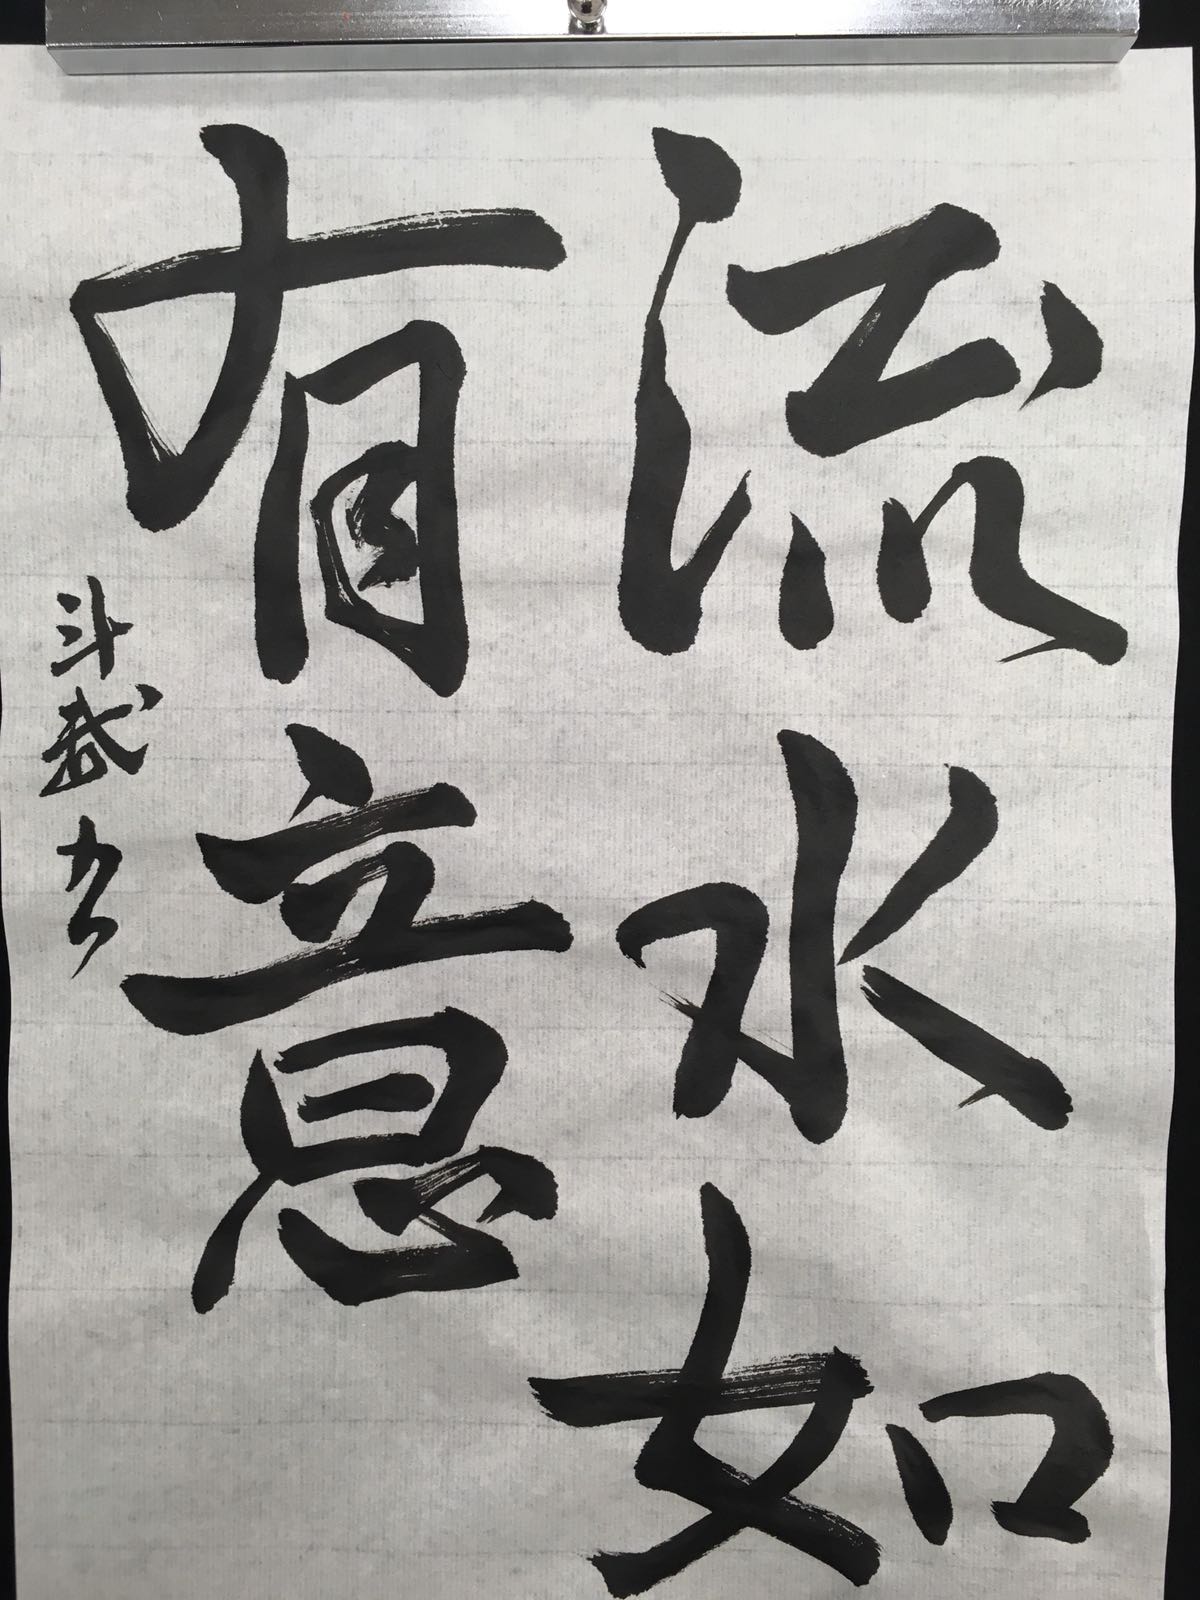 流水如
有意
斗武书